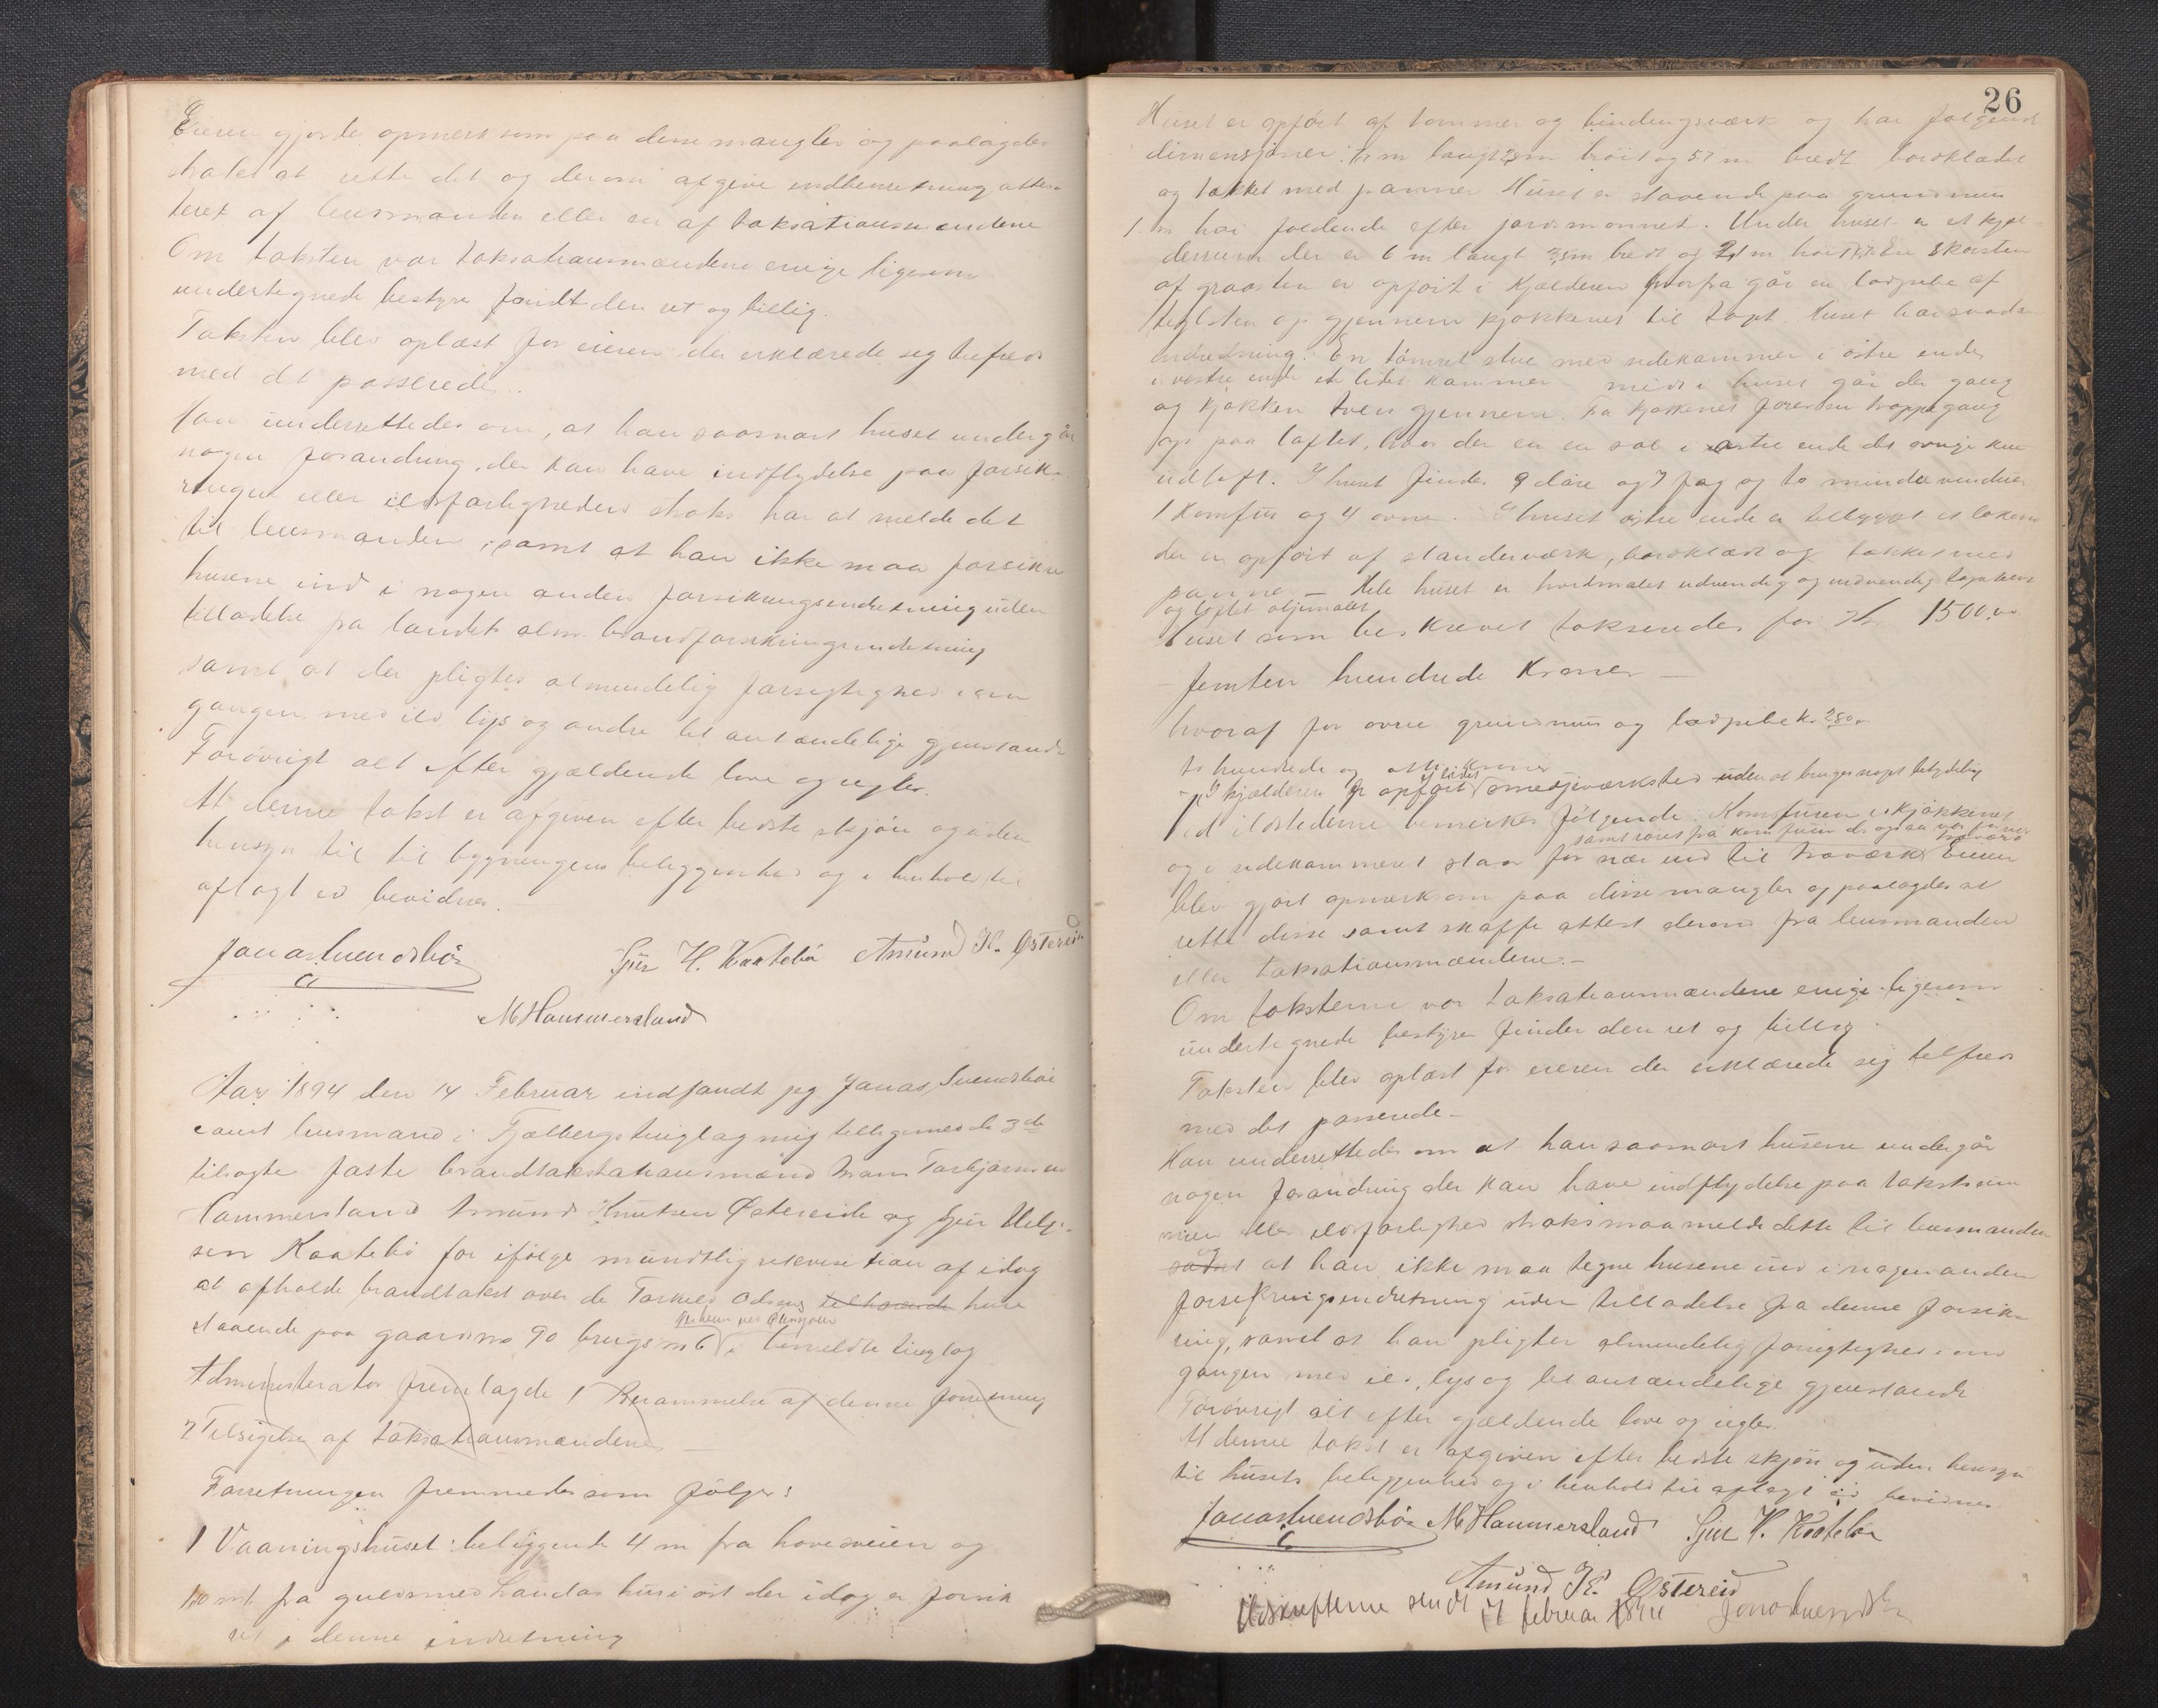 Eieren gjordes opmerksom paa disse mangler og paalagdes
straks at rette det og derom afgive indberetning atte-
teret af lensmanden eller en af taksationsmændene
Om taksten var taksationsmændene enige ligesom
undertegnede bestyrer fandt den ret og billig.
Taksten blev oplæst for eieren der erklærede seg tilfreds
med det passerede.
Han underrettedes om, at han saasnart huset undergår
nogen forandring, der kan have indflydelse paa forsik-
ringen eller ildsfarligheden straks har at melde det
til lensmanden, samt at han ikke maa forsikre
husene ind i nogen anden forsikringsindretning uden
tilladelse fra landets alm. brandforsikringsindretning
samt at der pligtes almindelig forsigtighed i om
gangen med ild lys og andre let antændelige gjenstande
Forøvrigt alt efter gjældende love og regler.
At denne takst er afgiven efter bedste skjøn og uden
hensyn til til bygningens beliggenhed og i henhold til
aflagt ed bevidnes.
Jonas Svendsbøe Sjur H. Kaatebø Amund K. Østereid
M Hammersland
Aar 1894 den 14 Februar indfandt jeg Jonas Svendsbøe
const lensmand i Fjælbergs tinglag mig tilligemed de 3de
tilsagte faste brandtakstationsmænd Mons Torbjørnsen
Hammersland Amund Knutsen Østereide og Sjur Helge-
sen Kaatebø for ifølge mundtlig rekvisition af idag
at afholde brandtakst over de Torkild Odsens tilhørende huse
staaende paa gaardsno 90 brugsno 6 i bemeldte tinglag
Administrator fremlagde 1 Berammelse af denne forretning
2 Tilsigelse af taksationsmændene
Forretningen fremmedes som følger:
1 Vaaningshuset beliggende 4 m fra hovedveien og
mt. fra guldsmed Landas hus i øst der idag er forsik
ret i denne indretning
26
Huset er opført af tømmer og bindingsværk og har følgende
dimensjoner: m langt m høit og 5.7 m bredt bordklædt
og tækket med panner Huset er staaende paa grundmur
1 m høi faldende efter jordsmonnet. Under huset er et kjæl
derrum der er 6 m langt 3,5m bredt og m høit En Skorsten
af graasten er opført i kjælderen hvorfra går en ladpibe af
teglsten op gjennem kjøkkenet til tags. Huset har saadan
indredning: En tømret stue med sidekammer i østre ende,
i vestre ende et lidet kammer midt i huset går der gang
og kjøkken tvers gjennem. Fra kjøkkenet fører en trappegang
op paa loftet, hvor der er en sal i østre ende det øvrige kun
udloft. I huset findes 9 døre og 7 fag og to mindre vinduer
1 Komfur og 4 ovne. I huset østre ende er tilbygget et lokum
der er opført af standerværk, bordklædt og tækket med
panner – Hele huset er hvidmalet udvendig og indvendig
og loftet oljemalet
Huset som beskrevet takseredes for Kr 1500.00
– Femten hundrede Kroner –
hvoraf for ovne grundmur og ladpibe kr. 280.
to hundrede og otti kroner
I kjælderen er opført et lidet smedjeværksted uden at bruges noget betydelig
Ved ildstederne bemerkes følgende: Komfuren i kjøkkenet
samt røret fra komfuren
og i sidekammeret staar for nær ind til træværk. Eieren
blev gjort opmerksom paa disse mangler og paalagdes at
rette disse samt skaffe attest derom fra lensmanden
eller taksationsmændene.–
Om taksterne var taksationsmændene enige ligesom
undertegnede bestyrer finder den ret og billig.
Taksten blev oplæst for eieren der erklærede sig tilfreds
med det passerede–
Han underrettedes om at han saasnart husene undergår
nogen forandring der kan have indflydelse paa takstsum
men eller ildsfarlighed straks maa melde dette til lensmanden
samt at han ikke maa tegne husene ind i nogen anden
forsikringsindretning uden tilladelse fra denne forsik-
ring, samt at han pligter almindelig forsigtighed i om
gangen med ild, lys og let antændelige gjenstande
Forøvrigt alt efter gjældende love og regler.
At denne takst er afgiven efter bedste skjøn og uden hensyn
til husets beliggenhed og i henhold til aflagt ed bevidnes.
Jonas Svendsbøe M Hammersland Sjur H. Kaatebø
Amund K. Østereid
Udskrifterne sendt 17 februar 1894 Jonas Svendsbøe